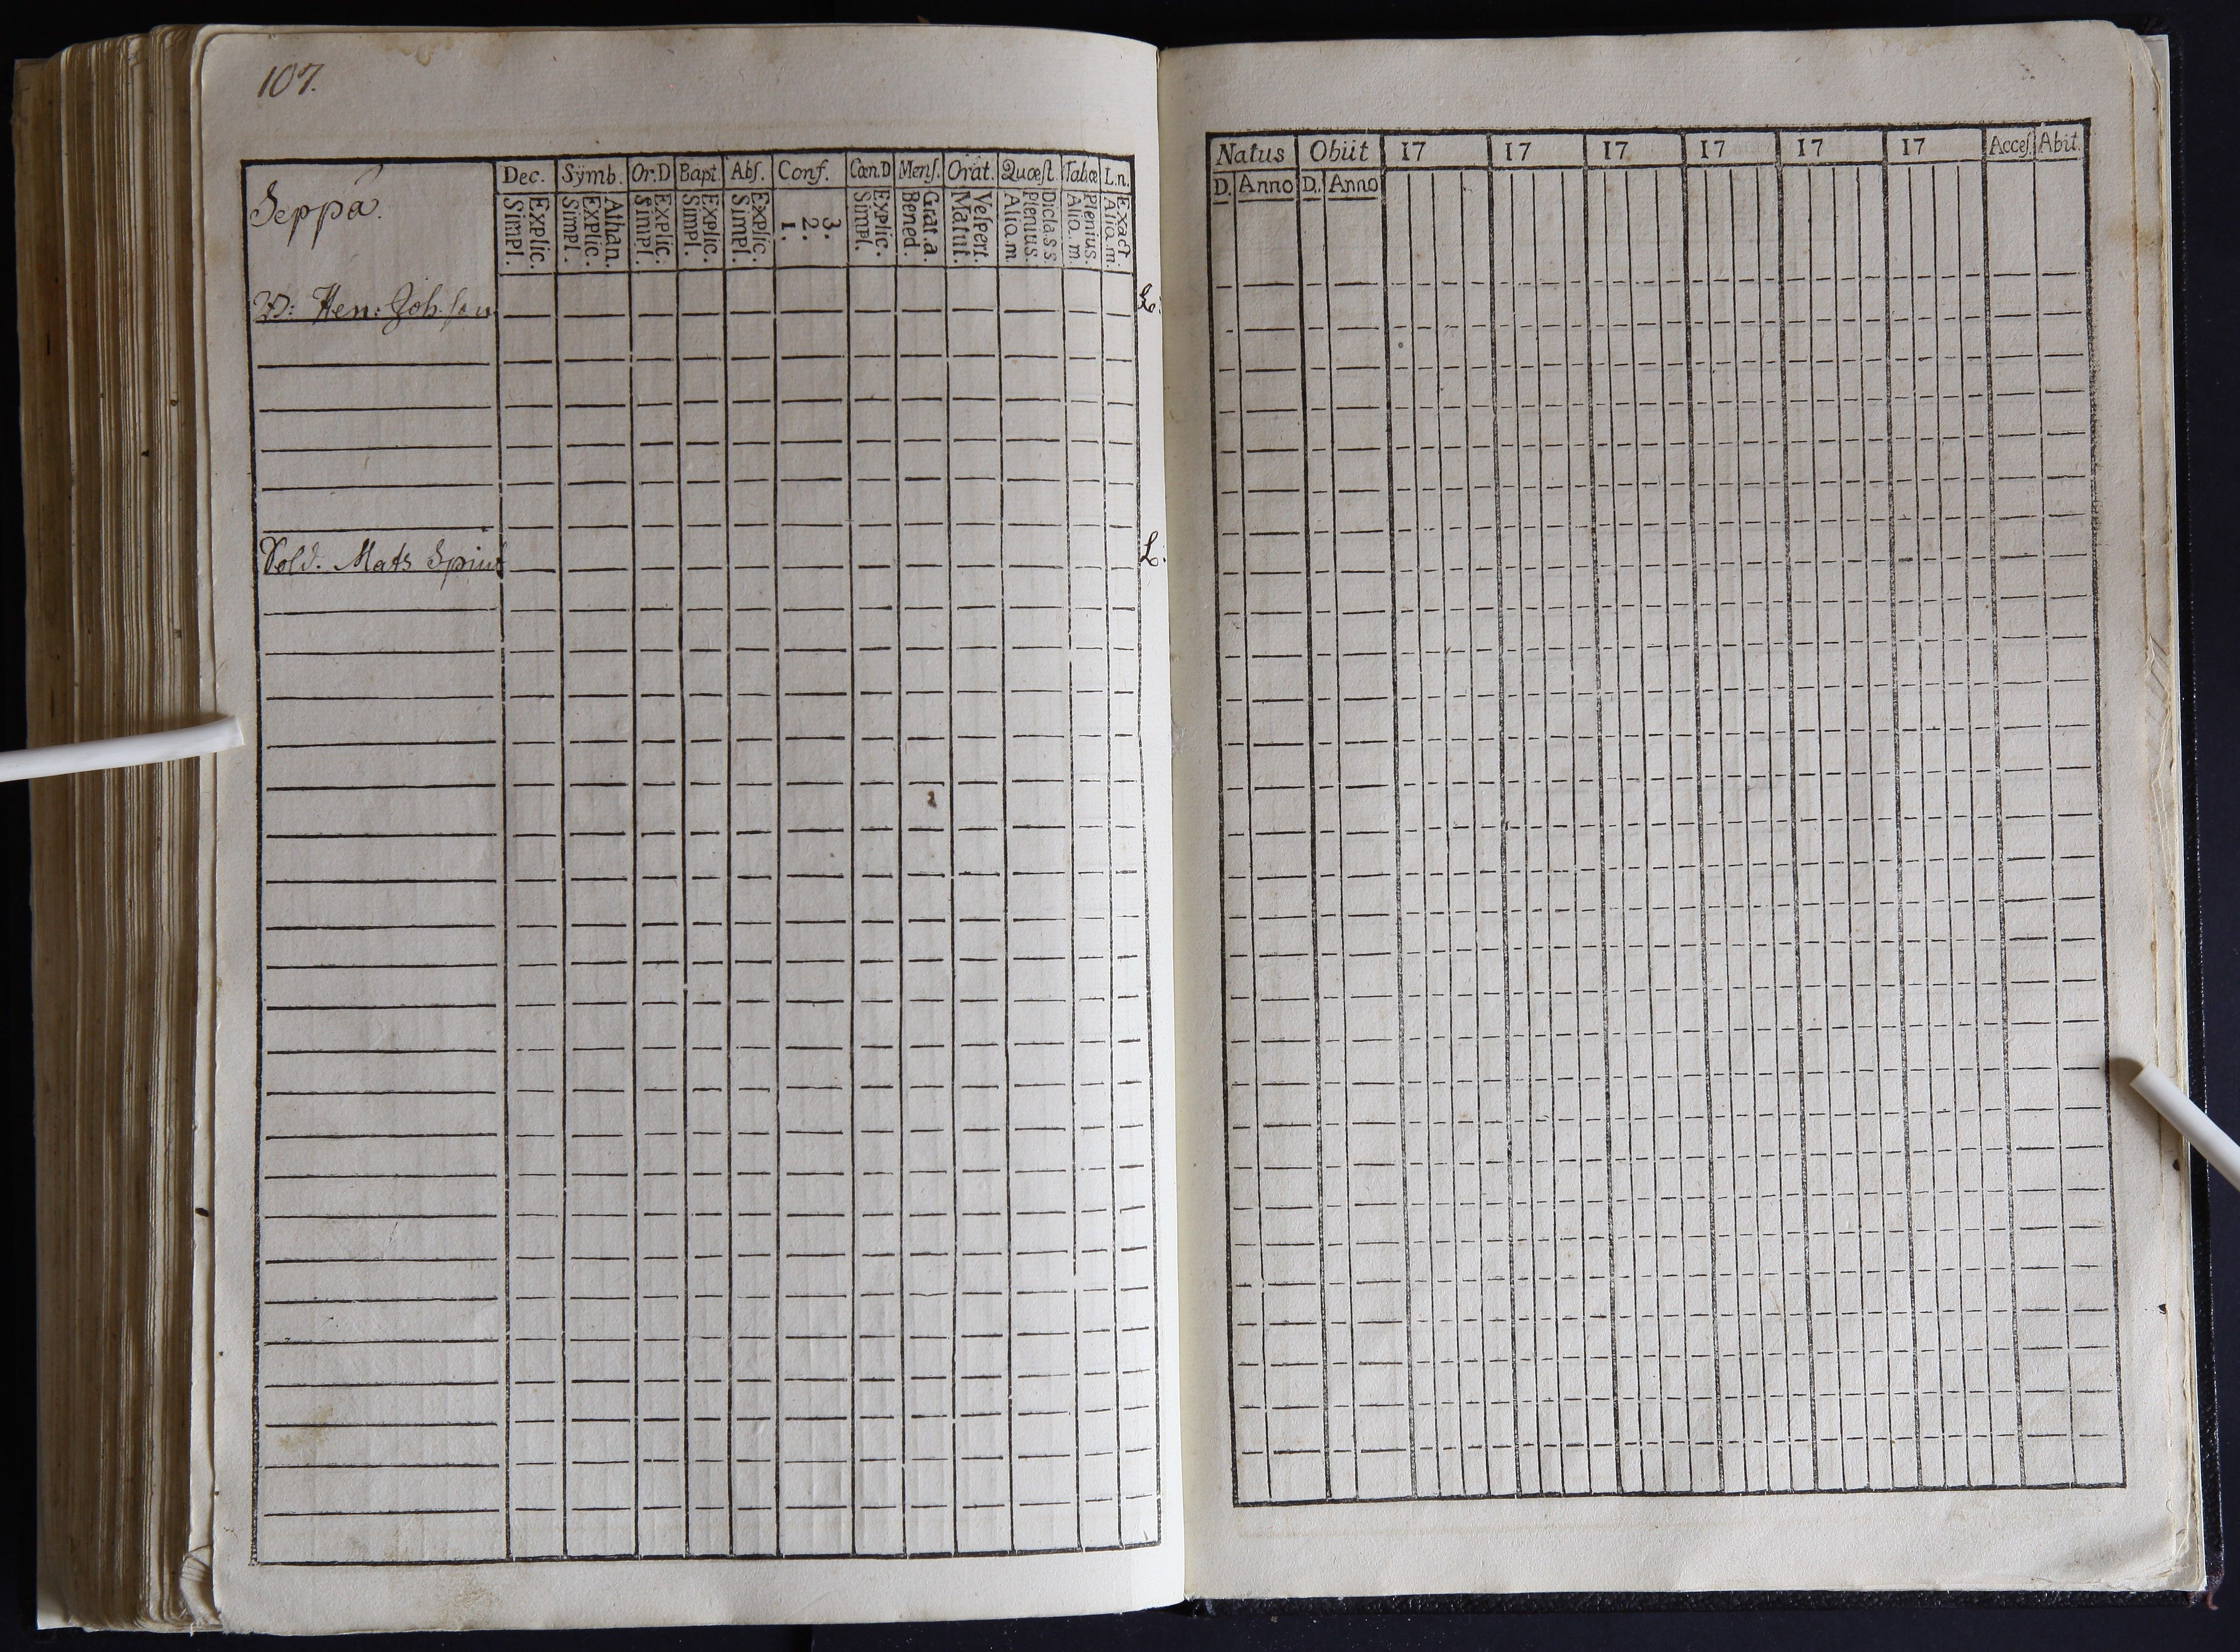 107.
Seppä.
Dec. Sÿmb. Or.D Bapt. Abſ. Conf. Cœn.D Menſ. Orat. Quæſt. Tab.œ L.n.
Simpl. Explic. Simpl. Explic. Athan. Simpl. Explic. Simpl. Explic. Simpl. Explic. 1. 2. 3. Simpl. Explic. Bened. Grat.a. Matut. Veſpert. Aliq.m. Plenius. Dicta S S Aliq.m. Plenius. Aliq.m. Exact.
Hen: Joh.ſon
L:
Sold. Mats Spint
L:
Natus Obiit 17 17 17 17 17 17 Acceſ. Abit.
D. Anno D. Anno